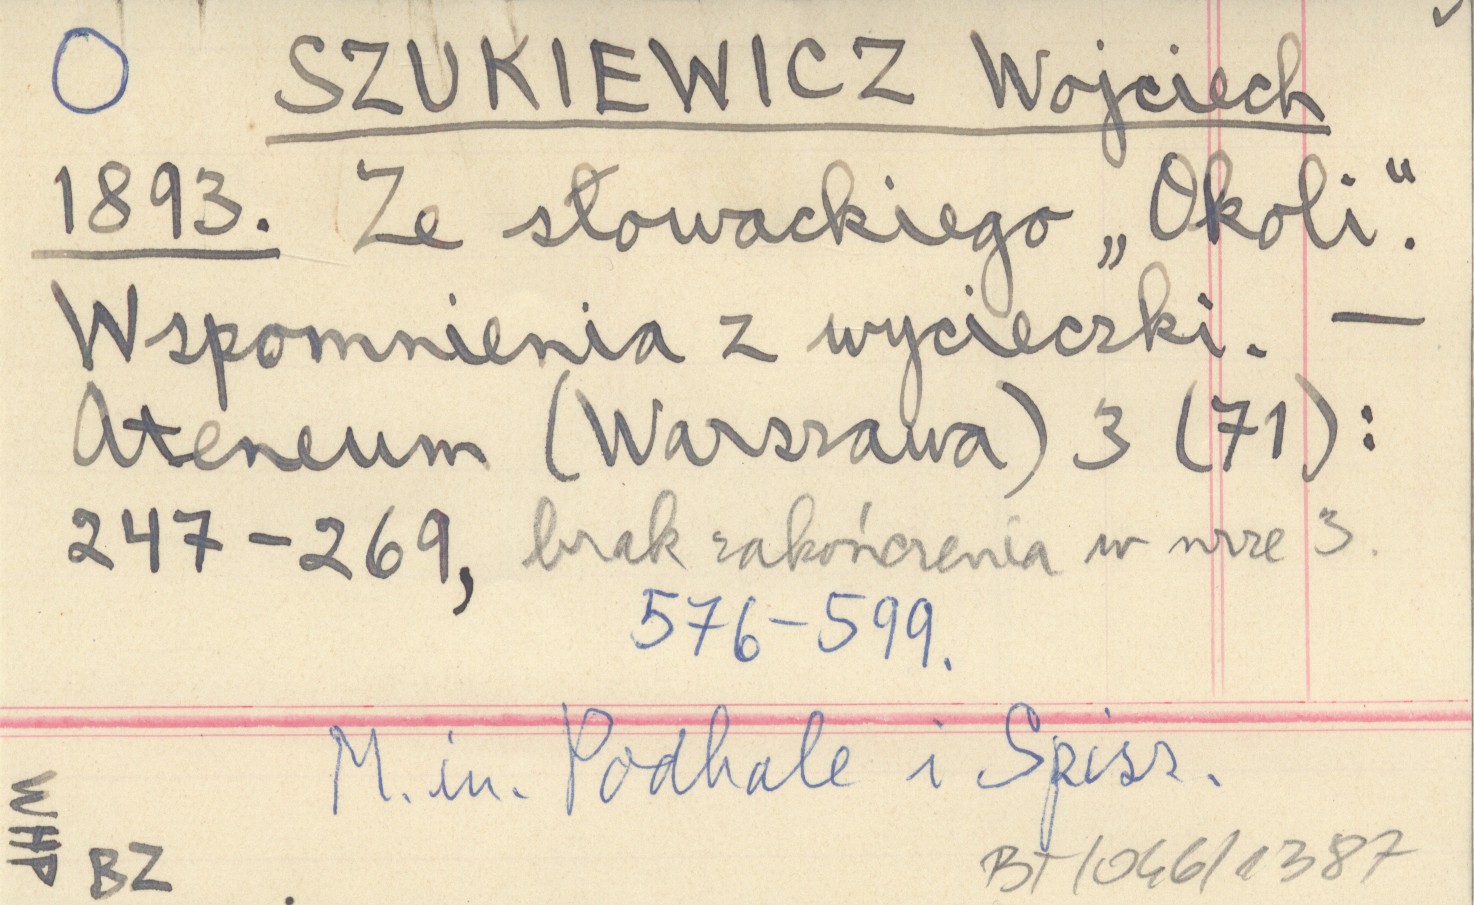 SZUKIEWICZ Wojciech
1893. Ze słowackiego „Okoli“.
Wspomnienia z wycieczki. —
Ateneum (Warszawa) 3 (71):
247-269, brak zakończenia w nrze 3.
576-599.
M.in. Podhale i Spisz.
WHP
BZ
BT/046/1387